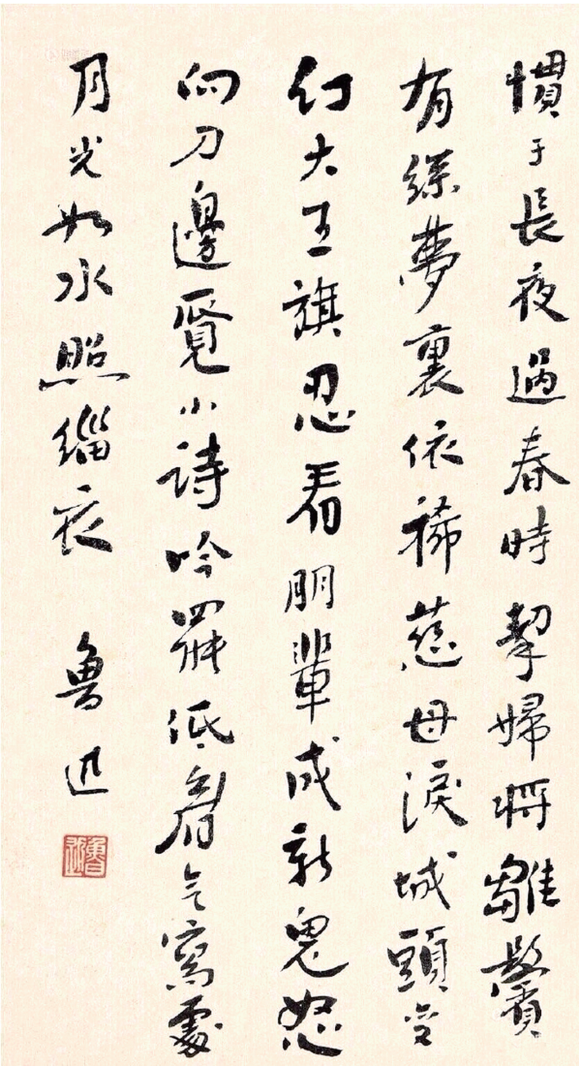 慣于長夜過春時挈婦將雛鬢
有絲夢裏依稀慈母淚城頭變
幻大王旗忍看朋輩成新鬼怒
向刀邊覓小詩吟罷低眉无寫處
月光如水照緇衣 魯迅
魯迅